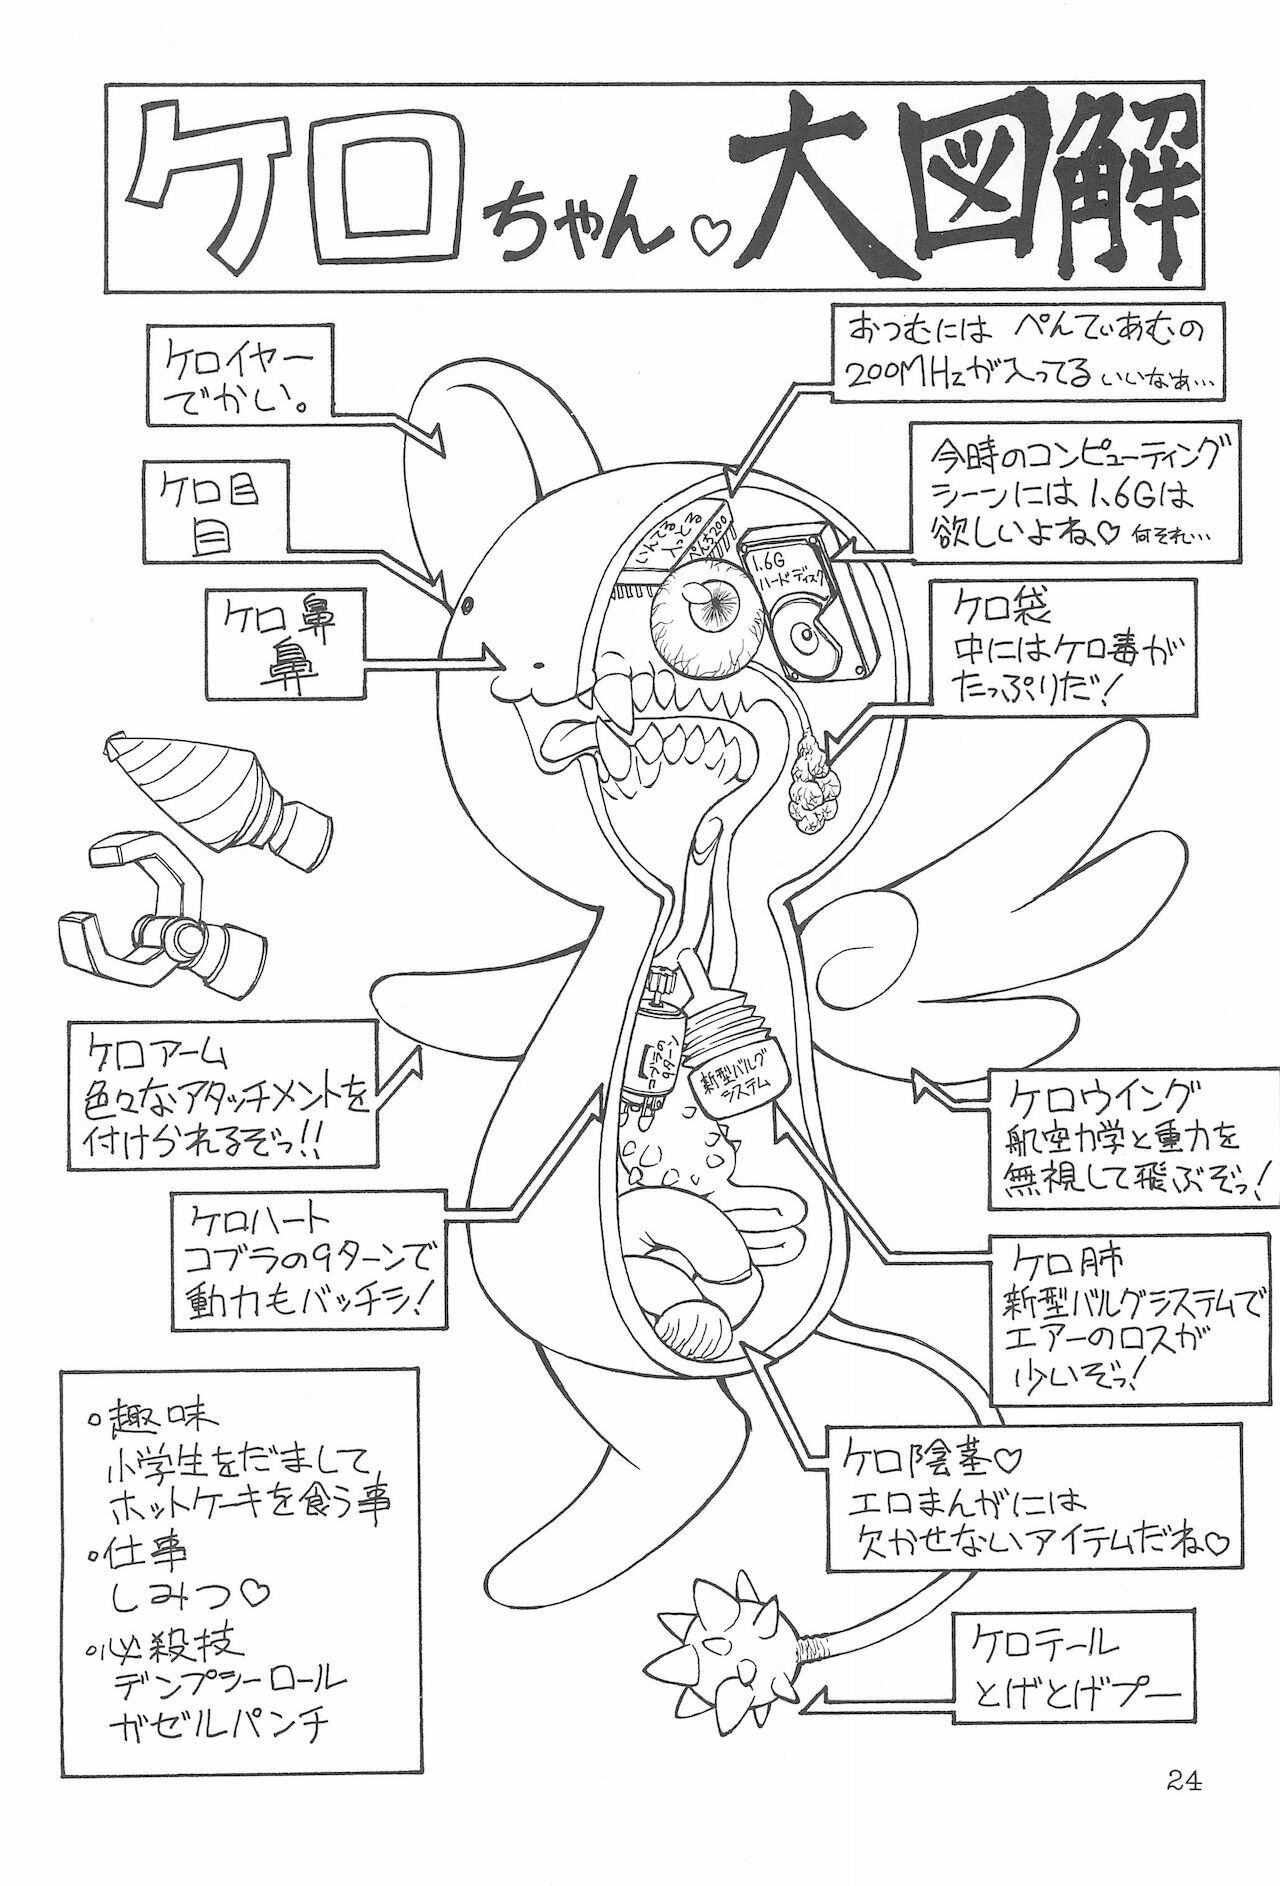 ケロちゃん♡大図解
ケロイヤー
でかい。
おつむには ぺんてぃあむの
200MHzが入ってる いいなぁ…
ケロ目
目
今時のコンピューティング
シーンには1.6Gは
欲しいよね♡ 何それ…
ケロ鼻
鼻
いんてる
入っとる
ぺんち200
1.6G
ハードディスク
ケロ袋
中にはケロ毒が
たっぷりだ!
ケロアーム
色々なアタッチメントを
付けられるぞっ!!
コブラの
9ターン
新型バルグ
システム
ケロウイング
航空力学と重力を
無視して飛ぶぞっ!
ケロハート
コブラの9ターンで
動力もバッチシ!
ケロ肺
新型バルグシステムで
エアーのロスが
少いぞっ!
。趣味
小学生をだまして
ホットケーキを食う事
。仕事
しみつ♡
。必殺技
デンプシーロール
ガゼルパンチ
ケロ陰茎♡
エロまんがには
欠かせないアイテムだね♡
ケロテール
とげとげプー
24